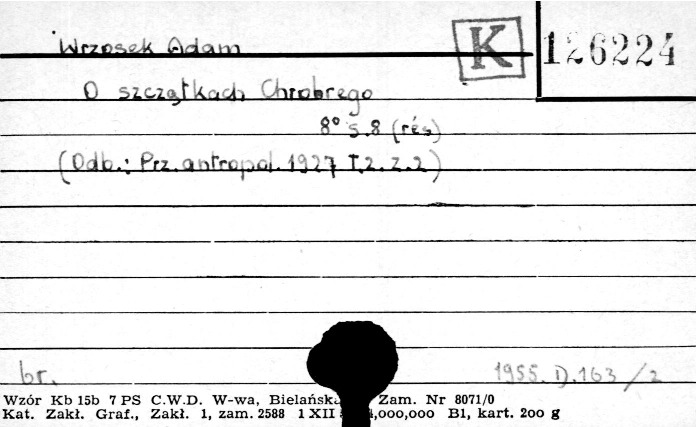 Wrzosek Adam
K
126224
O szczątkach Chrobrego
8° s.8 (rés)
(Odb.: Prz. antropol. 1927 T.2. z.2)
br.
1955. D.163/2
Wzór Kb 15b 7 PS C.W.D. W-wa, Zam. Nr 8071/0
Kat. Zakł. Graf., Zakł. 1, zam. 2588 1 XII ,000,000 B1, kart. 200 g